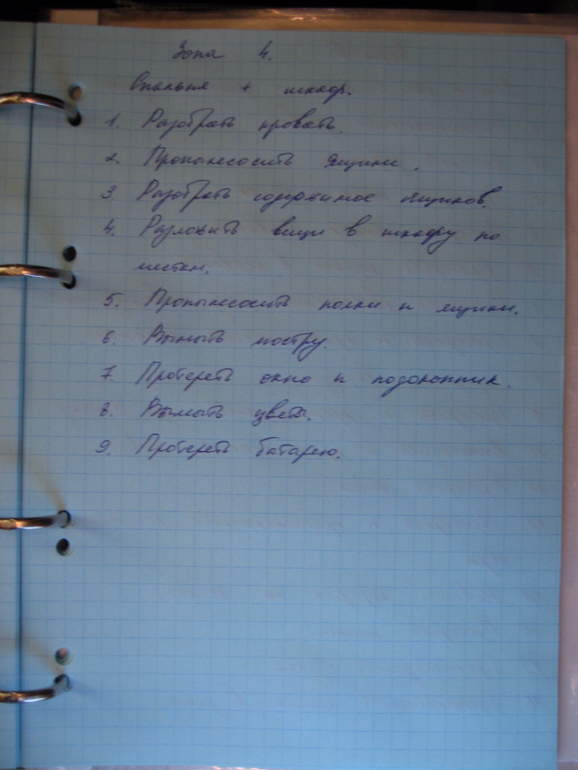 Зона 4.
Спальня + шкаф.
1. Разобрать кровать.
2. Пропылесосить ящики.
3. Разобрать содержимое ящиков.
4. Разложить вещи в шкафу по
местам.
5. Пропылесосить полки и ящики.
6. Вымыть люстру.
7. Протереть окно и подоконник.
8. Вымыть цветы.
9. Протереть батарею.